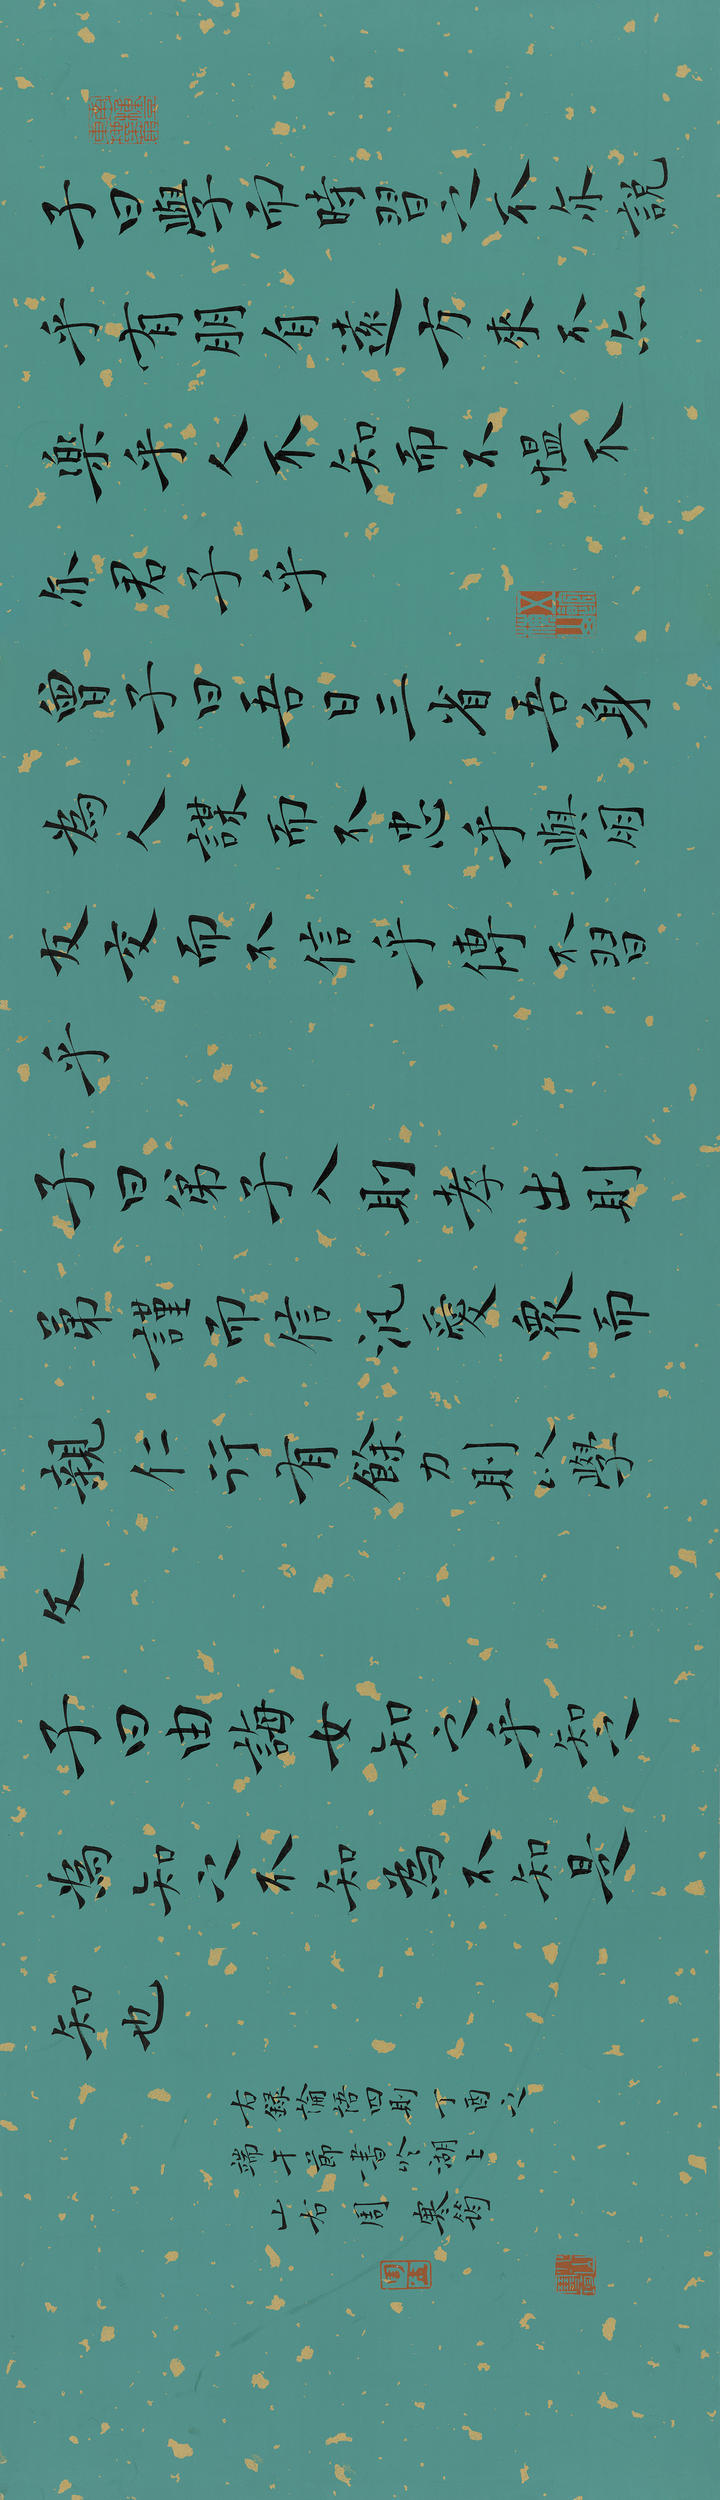 子曰學而時習之不亦說
乎有朋自遠方來不亦
樂乎人不知而不慍不
亦君子乎
曾子曰吾日三省吾身
為人謀而不忠乎與朋
友交而不信乎傳不習
乎
子曰弟子入則孝出則
悌謹而信汎愛眾而
親仁行有餘力則以學
文
子曰由誨女知之乎知之
為知之不知為不知是
知也